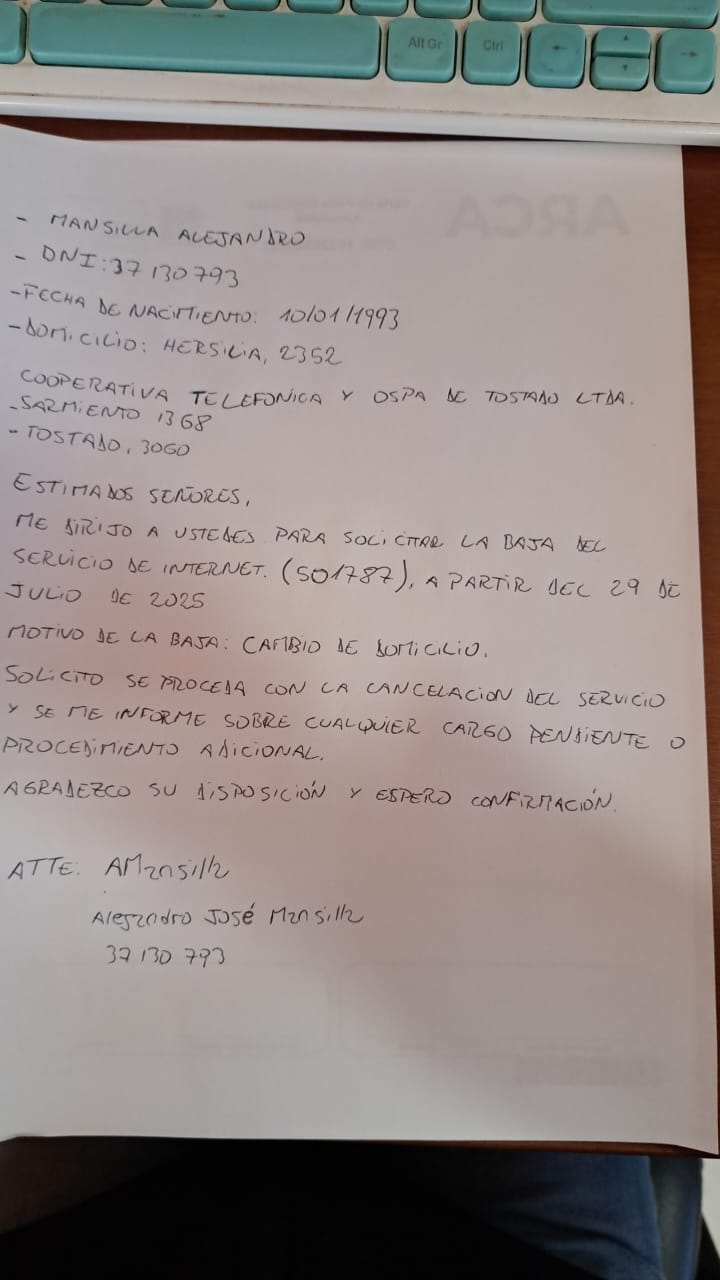 Alt Gr
Ctrl
ARCA
- MANSILLA ALEJANDRO
- DNI: 37 130 793
- FECHA DE NACIMIENTO: 10/01/1993
- DOMICILIO: HERSILIA, 2352
COOPERATIVA TELEFONICA Y OSPA DE TOSTADO LTDA.
- SARMIENTO 1368
- TOSTADO, 3060
ESTIMADOS SEÑORES,
ME DIRIJO A USTEDES PARA SOLICITAR LA BAJA DEL
SERVICIO DE INTERNET. (SO1787), A PARTIR DEL 29 DE
JULIO DE 2025
MOTIVO DE LA BAJA: CAMBIO DE DOMICILIO.
SOLICITO SE PROCEDA CON LA CANCELACION DEL SERVICIO
Y SE ME INFORME SOBRE CUALQUIER CARGO PENDIENTE O
PROCEDIMIENTO ADICIONAL.
AGRADEZCO SU DISPOSICIÓN Y ESPERO CONFIRMACIÓN.
ATTE: AMansilla
Alejandro José Mansilla
37 130 793